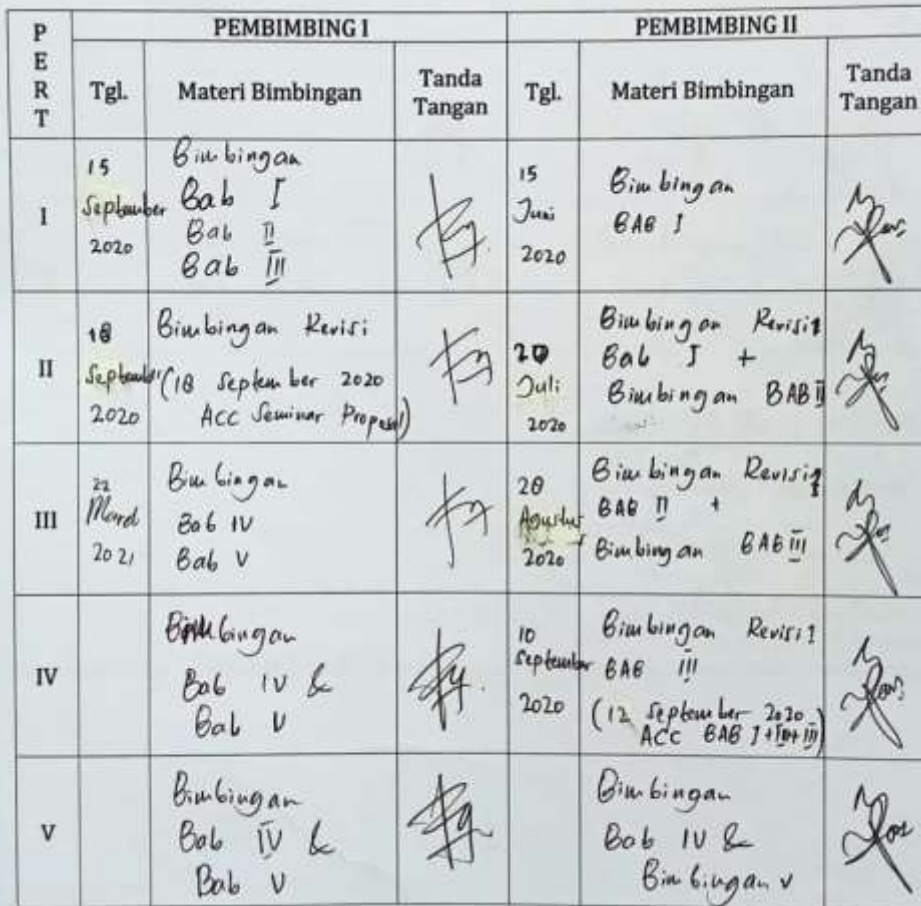 PERT
PEMBIMBING I
PEMBIMBING II
Tgl.
Materi Bimbingan
Tanda
Tangan
Tgl.
Materi Bimbingan
Tanda
Tangan
I
15
September
2020
Bimbingan
Bab I
Bab II
Bab III
15
Juni
2020
Bimbingan
BAB I
II
18
September
2020
Bimbingan Revisi
(18 September 2020
ACC Seminar Proposal)
20
Juli
2020
Bimbingan Revisi
Bab I +
Bimbingan BAB II
III
22
2021
Bimbingan
Bab IV
Bab V
20
Agustus
2020
Bimbingan Revisi
BAB II +
Bimbingan BAB III
IV
Bimbingan
Bab IV &
Bab V
10
September
2020
Bimbingan Revisi
BAB III
(12 September 2020
ACC BAB I+II+III)
V
Bimbingan
Bab IV &
Bab V
Bimbingan
Bab IV &
Bimbingan V